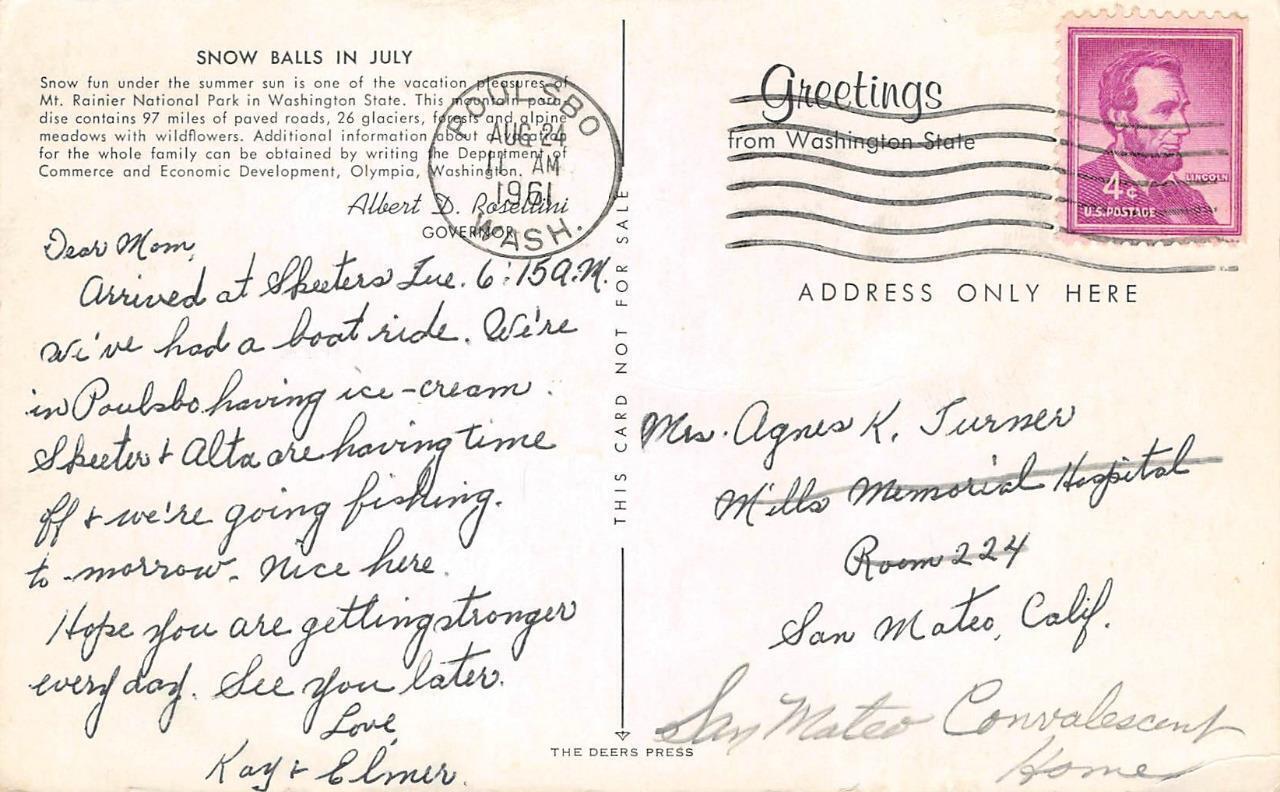 SNOW BALLS IN JULY
Snow fun under the summer sun is one of the vacation pleasures of
Mt. Rainier National Park in Washington State. This mountain para-
dise contains 97 miles of paved roads, 26 glaciers, forests and alpine
meadows with wildflowers. Additional information about a vacation
for the whole family can be obtained by writing the Department of
Commerce and Economic Development, Olympia, Washington.
Albert D. Rosellini
GOVERNOR
POULSBO
AUG 24
11 AM
1961
WASH.
Dear Mom,
Arrived at Skeeters Tue. 6:15 A.M.
We've had a boat ride. We're
in Poulsbo having ice-cream.
Skeeter & Alta are having time
off & we're going fishing.
to-morrow. Nice here.
Hope you are getting stronger
every day. See you later.
Love,
Kay & Elmer.
THIS CARD NOT FOR SALE
THE DEERS PRESS
Greetings
from Washington State
LINCOLN
4¢
U.S. POSTAGE
ADDRESS ONLY HERE
Mrs. Agnes K. Turner
Mills Memorial Hospital
Room 224
San Mateo, Calif.
San Mateo Convalescent
Home